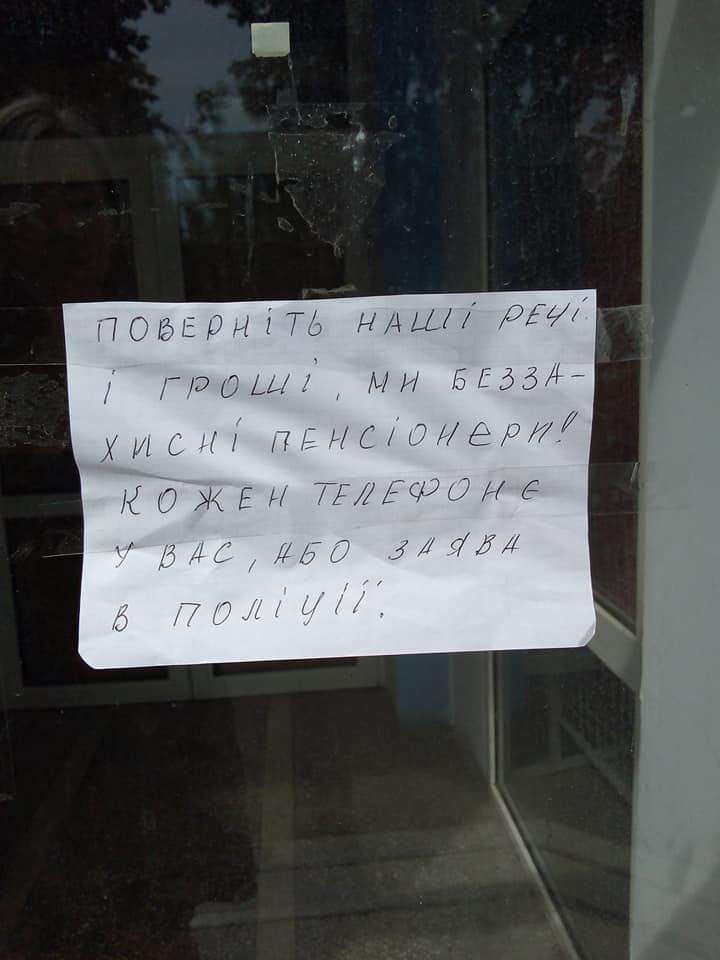 ПОВЕРНІТЬ НАШІ РЕЧІ
І ГРОШІ, МИ БЕЗЗА-
ХИСНІ ПЕНСІОНЕРИ!
КОЖЕН ТЕЛЕФОН Є
У ВАС, АБО ЗАЯВА
В ПОЛІЦІЇ.